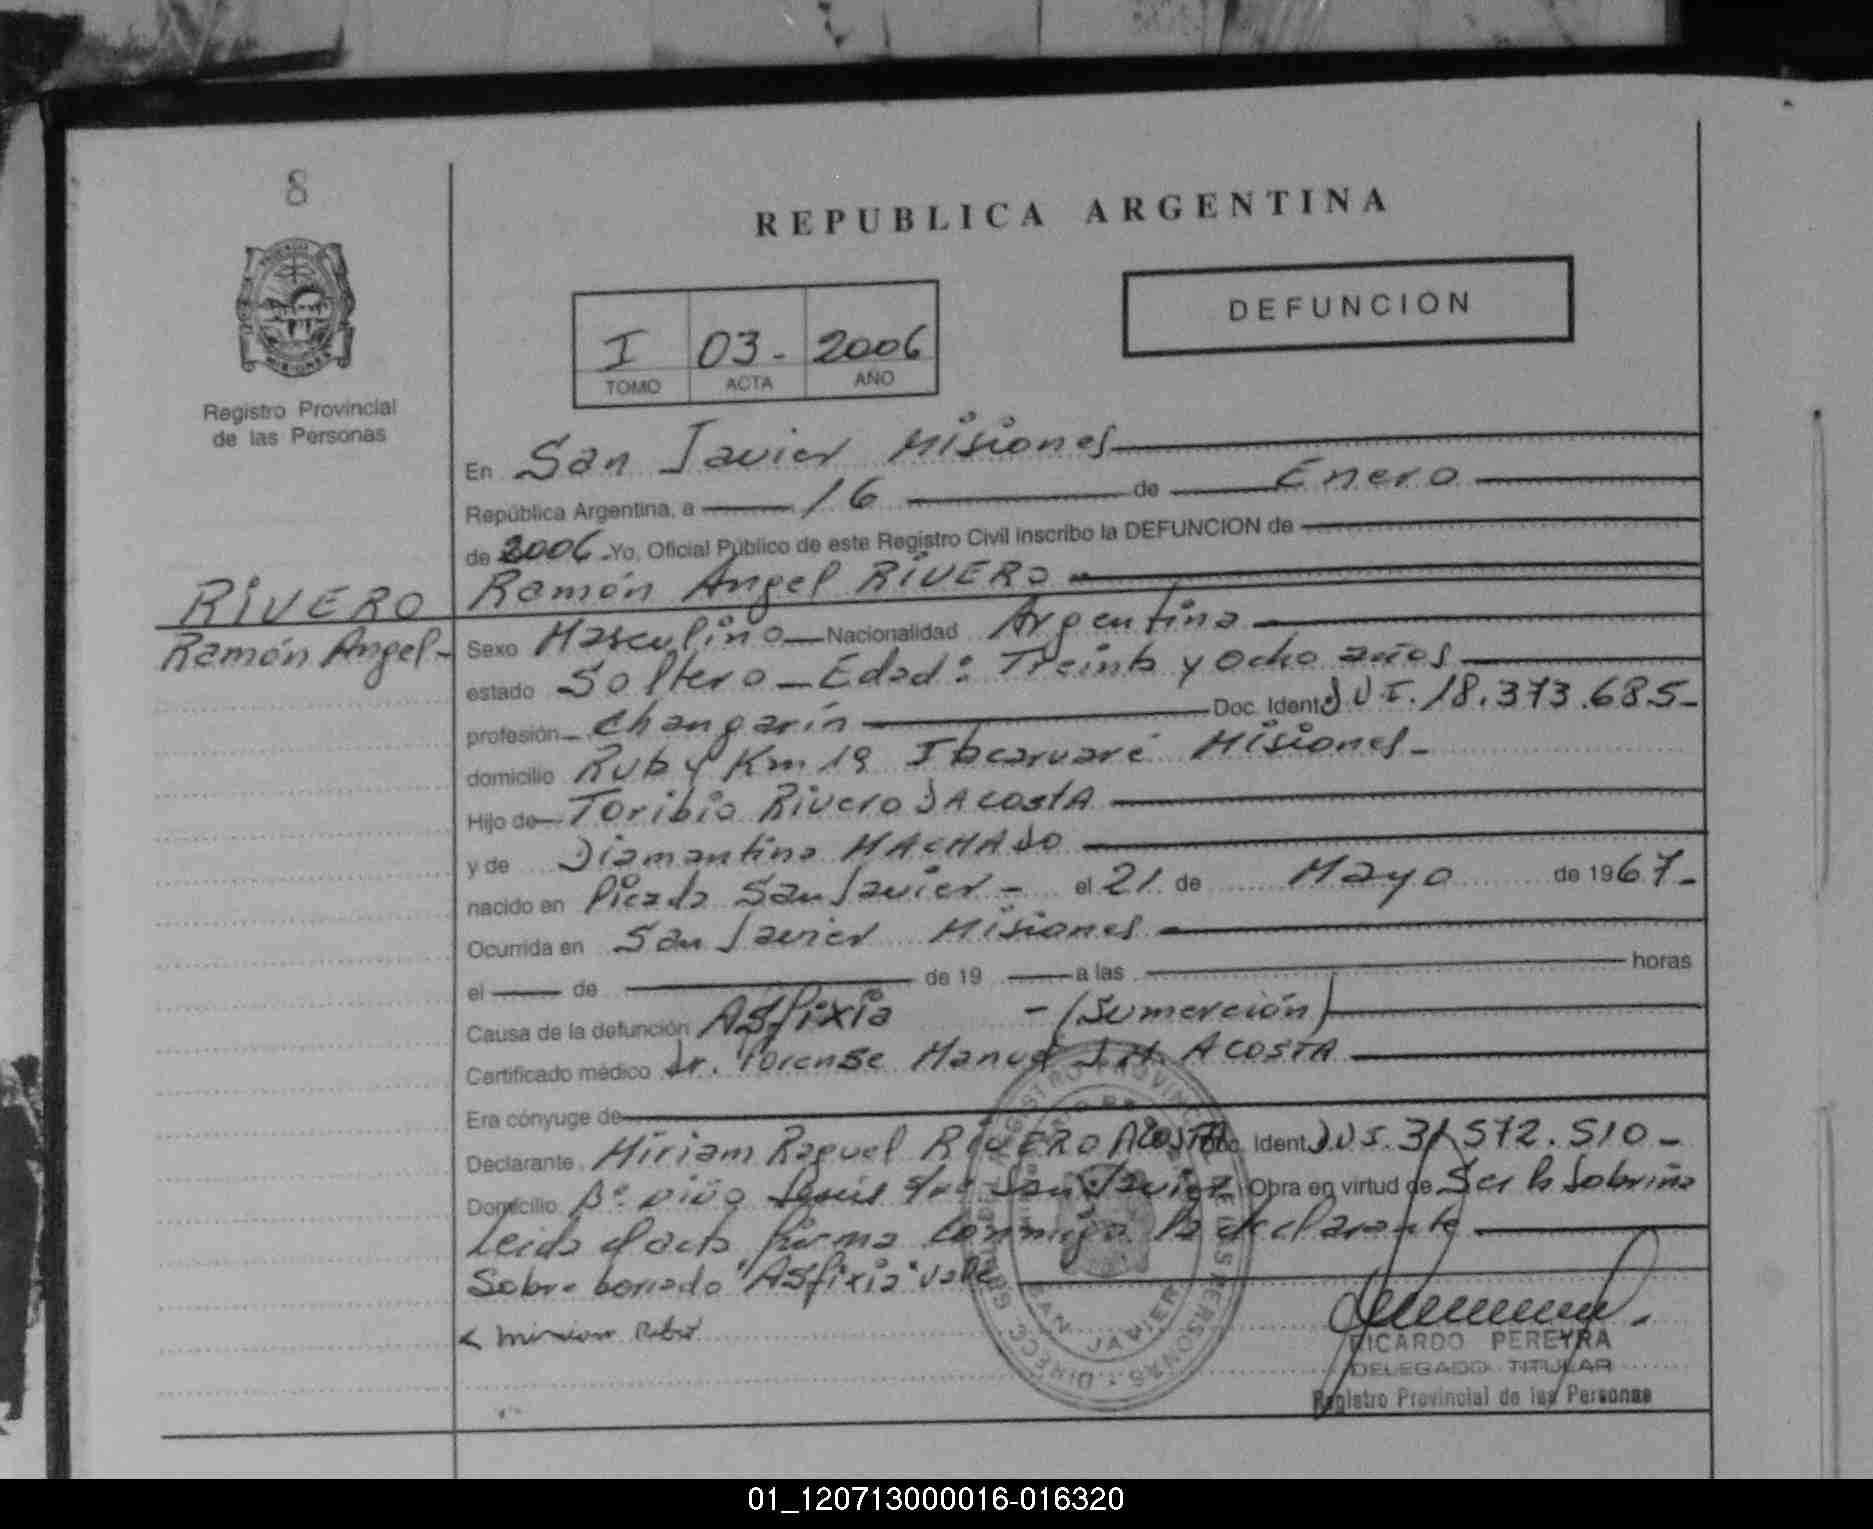 8
REPUBLICA ARGENTINA
DEFUNCION
I 03- 2006
TOMO ACTA AÑO
Registro Provincial
de las Personas
En San Javier Misiones
República Argentina, a 16 de Enero
de 2006 Yo, Oficial Público de este Registro Civil inscribo la DEFUNCION de
RIVERO
Ramón Angel-
Ramón Angel RIVERO
Sexo Masculino Nacionalidad Argentina
estado Soltero - Edad: Treinta y Ocho años
profesión Changarín Doc. Ident. D.N.I. 18.373.685-
domicilio Ruta 4 Km 19 Itacaruaré Misiones-
Hijo de Toribio Rivero DACOSTA
y de Diamantina MACHADO
nacido en Picada San Javier - el 21 de Mayo de 1967-
Ocurrida en San Javier Misiones
el de de 19 a las horas
Causa de la defunción Asfixia - (Sumerción)
Certificado médico Dr. Forense Manuel ACOSTA
Era cónyuge de
Declarante Miriam Raquel RIVERO ACOSTA Doc. Ident. 572.510-
Domicilio Bº Niño Jesús San Javier Obra en virtud de Ser la Sobrina
Leida el acta firma conmigo la declarante
Sobre borrado "Asfixia" Vale
RICARDO PEREYRA
DELEGADO TITULAR
Registro Provincial de las Personas
SAN JAVIER
01_120713000016-016320